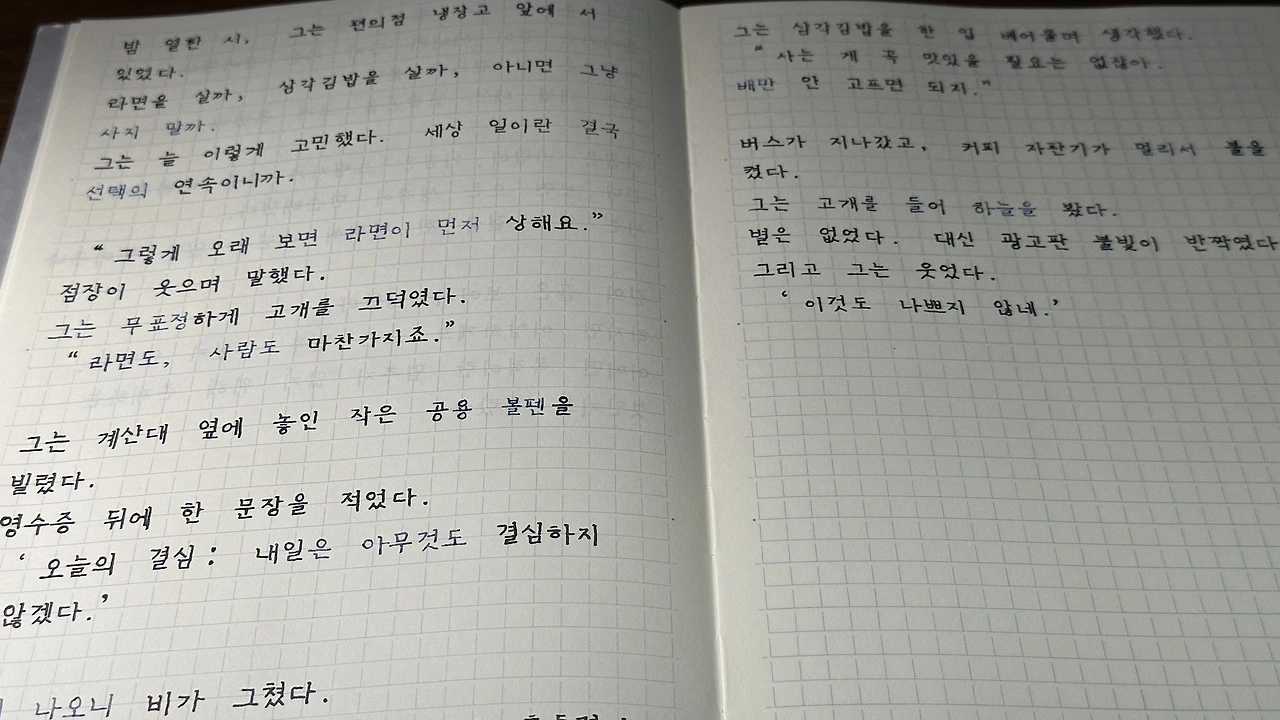 밤 열한 시, 그는 편의점 냉장고 앞에 서
있었다.
라면을 살까, 삼각김밥을 살까, 아니면 그냥
사지 말까.
그는 늘 이렇게 고민했다. 세상 일이란 결국
선택의 연속이니까.
“그렇게 오래 보면 라면이 먼저 상해요.”
점장이 웃으며 말했다.
그는 무표정하게 고개를 끄덕였다.
“라면도, 사람도 마찬가지죠.”
그는 계산대 옆에 놓인 작은 공용 볼펜을
빌렸다.
영수증 뒤에 한 문장을 적었다.
‘오늘의 결심: 내일은 아무것도 결심하지
않겠다.’
나오니 비가 그쳤다.
그는 삼각김밥을 한 입 베어물며 생각했다.
“사는 게 꼭 맛있을 필요는 없잖아.
배만 안 고프면 되지.”
버스가 지나갔고, 커피 자판기가 멀리서 불을
켰다.
그는 고개를 들어 하늘을 봤다.
별은 없었다. 대신 광고판 불빛이 반짝였다
그리고 그는 웃었다.
‘이것도 나쁘지 않네.’